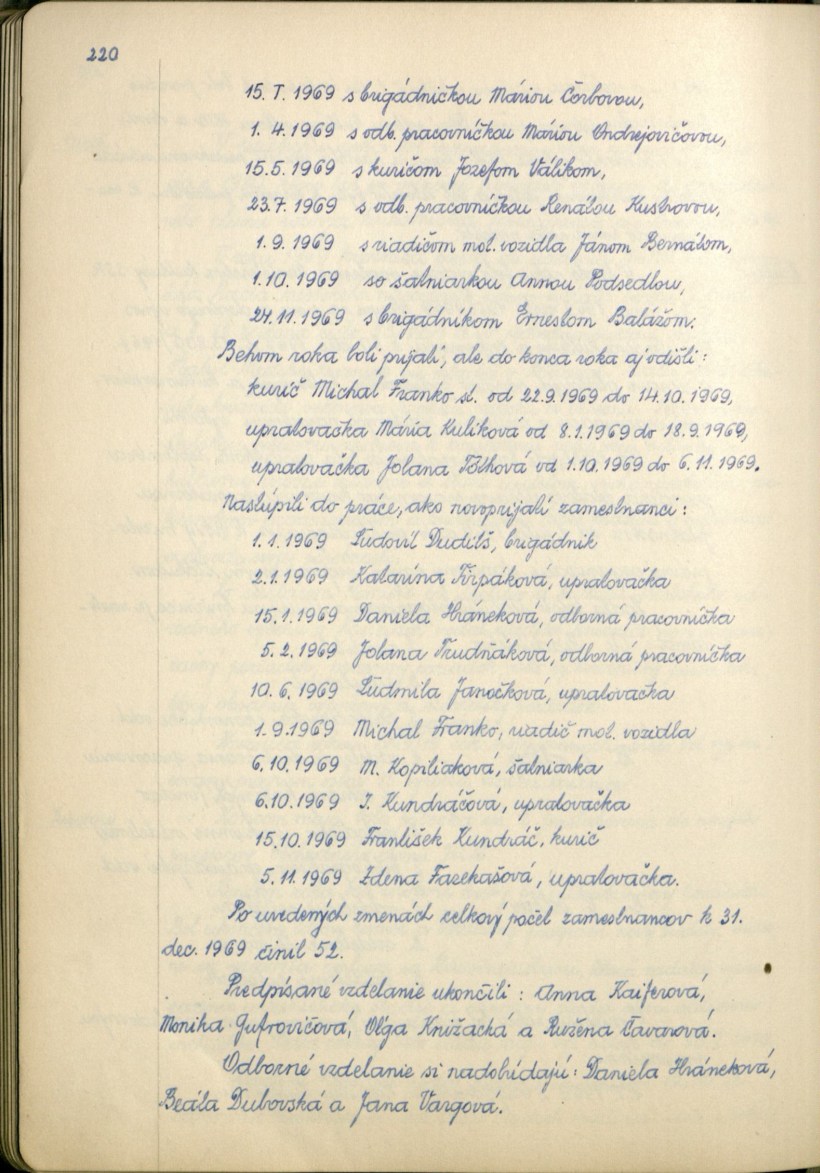 220
15. I. 1969 s brigádničkou Máriou Čorbovou,
1. 4. 1969 s odb. pracovníčkou Máriou Ondrejovičovou,
15.5. 1969 s kuričom Jozefom Válikom,
23.7. 1969 s odb. pracovníčkou Renátou Kustrovou,
1. 9. 1969 s riadičom mot. vozidla Jánom Bernátom,
1.10. 1969 so šatniarkou Annou Podsedlou,
24.11. 1969 s brigádnikom Ernestom Balážom.
Behom roka boli prijatí, ale do konca roka aj odišli:
kurič Michal Franko st. od 22.9.1969 do 14.10.1969,
upratovačka Mária Kuliková od 8.1.1969 do 18.9.1969,
upratovačka Jolana Tóthová od 1.10.1969 do 6.11.1969.
Nastúpili do práce, ako novoprijatí zamestnanci:
1. 1. 1969 Ľudovít Dudits, brigádnik
2.1.1969 Katarína Kirpáková, upratovačka
15.1.1969 Daniela Hráneková, odborná pracovníčka
5. 2. 1969 Jolana Trudňáková, odborná pracovníčka
10. 6. 1969 Ľudmila Janočková, upratovačka
1. 9.1969 Michal Franko, riadič mot. vozidla
6.10.1969 M. Kopiliaková, šatniarka
6.10.1969 I. Kundráčová, upratovačka
15.10.1969 František Kundráč, kurič
5.11.1969 Zdena Fazekašová, upratovačka.
Po uvedených zmenách celkový počet zamestnancov k 31.
dec. 1969 činil 52.
Predpísané vzdelanie ukončili: Anna Kaiferová,
Monika Gufrovičová, Oľga Knižacká a Ružena Čavarová.
Odborné vzdelanie si nadobúdajú: Daniela Hráneková,
Beáta Dubovská a Jana Vargová.